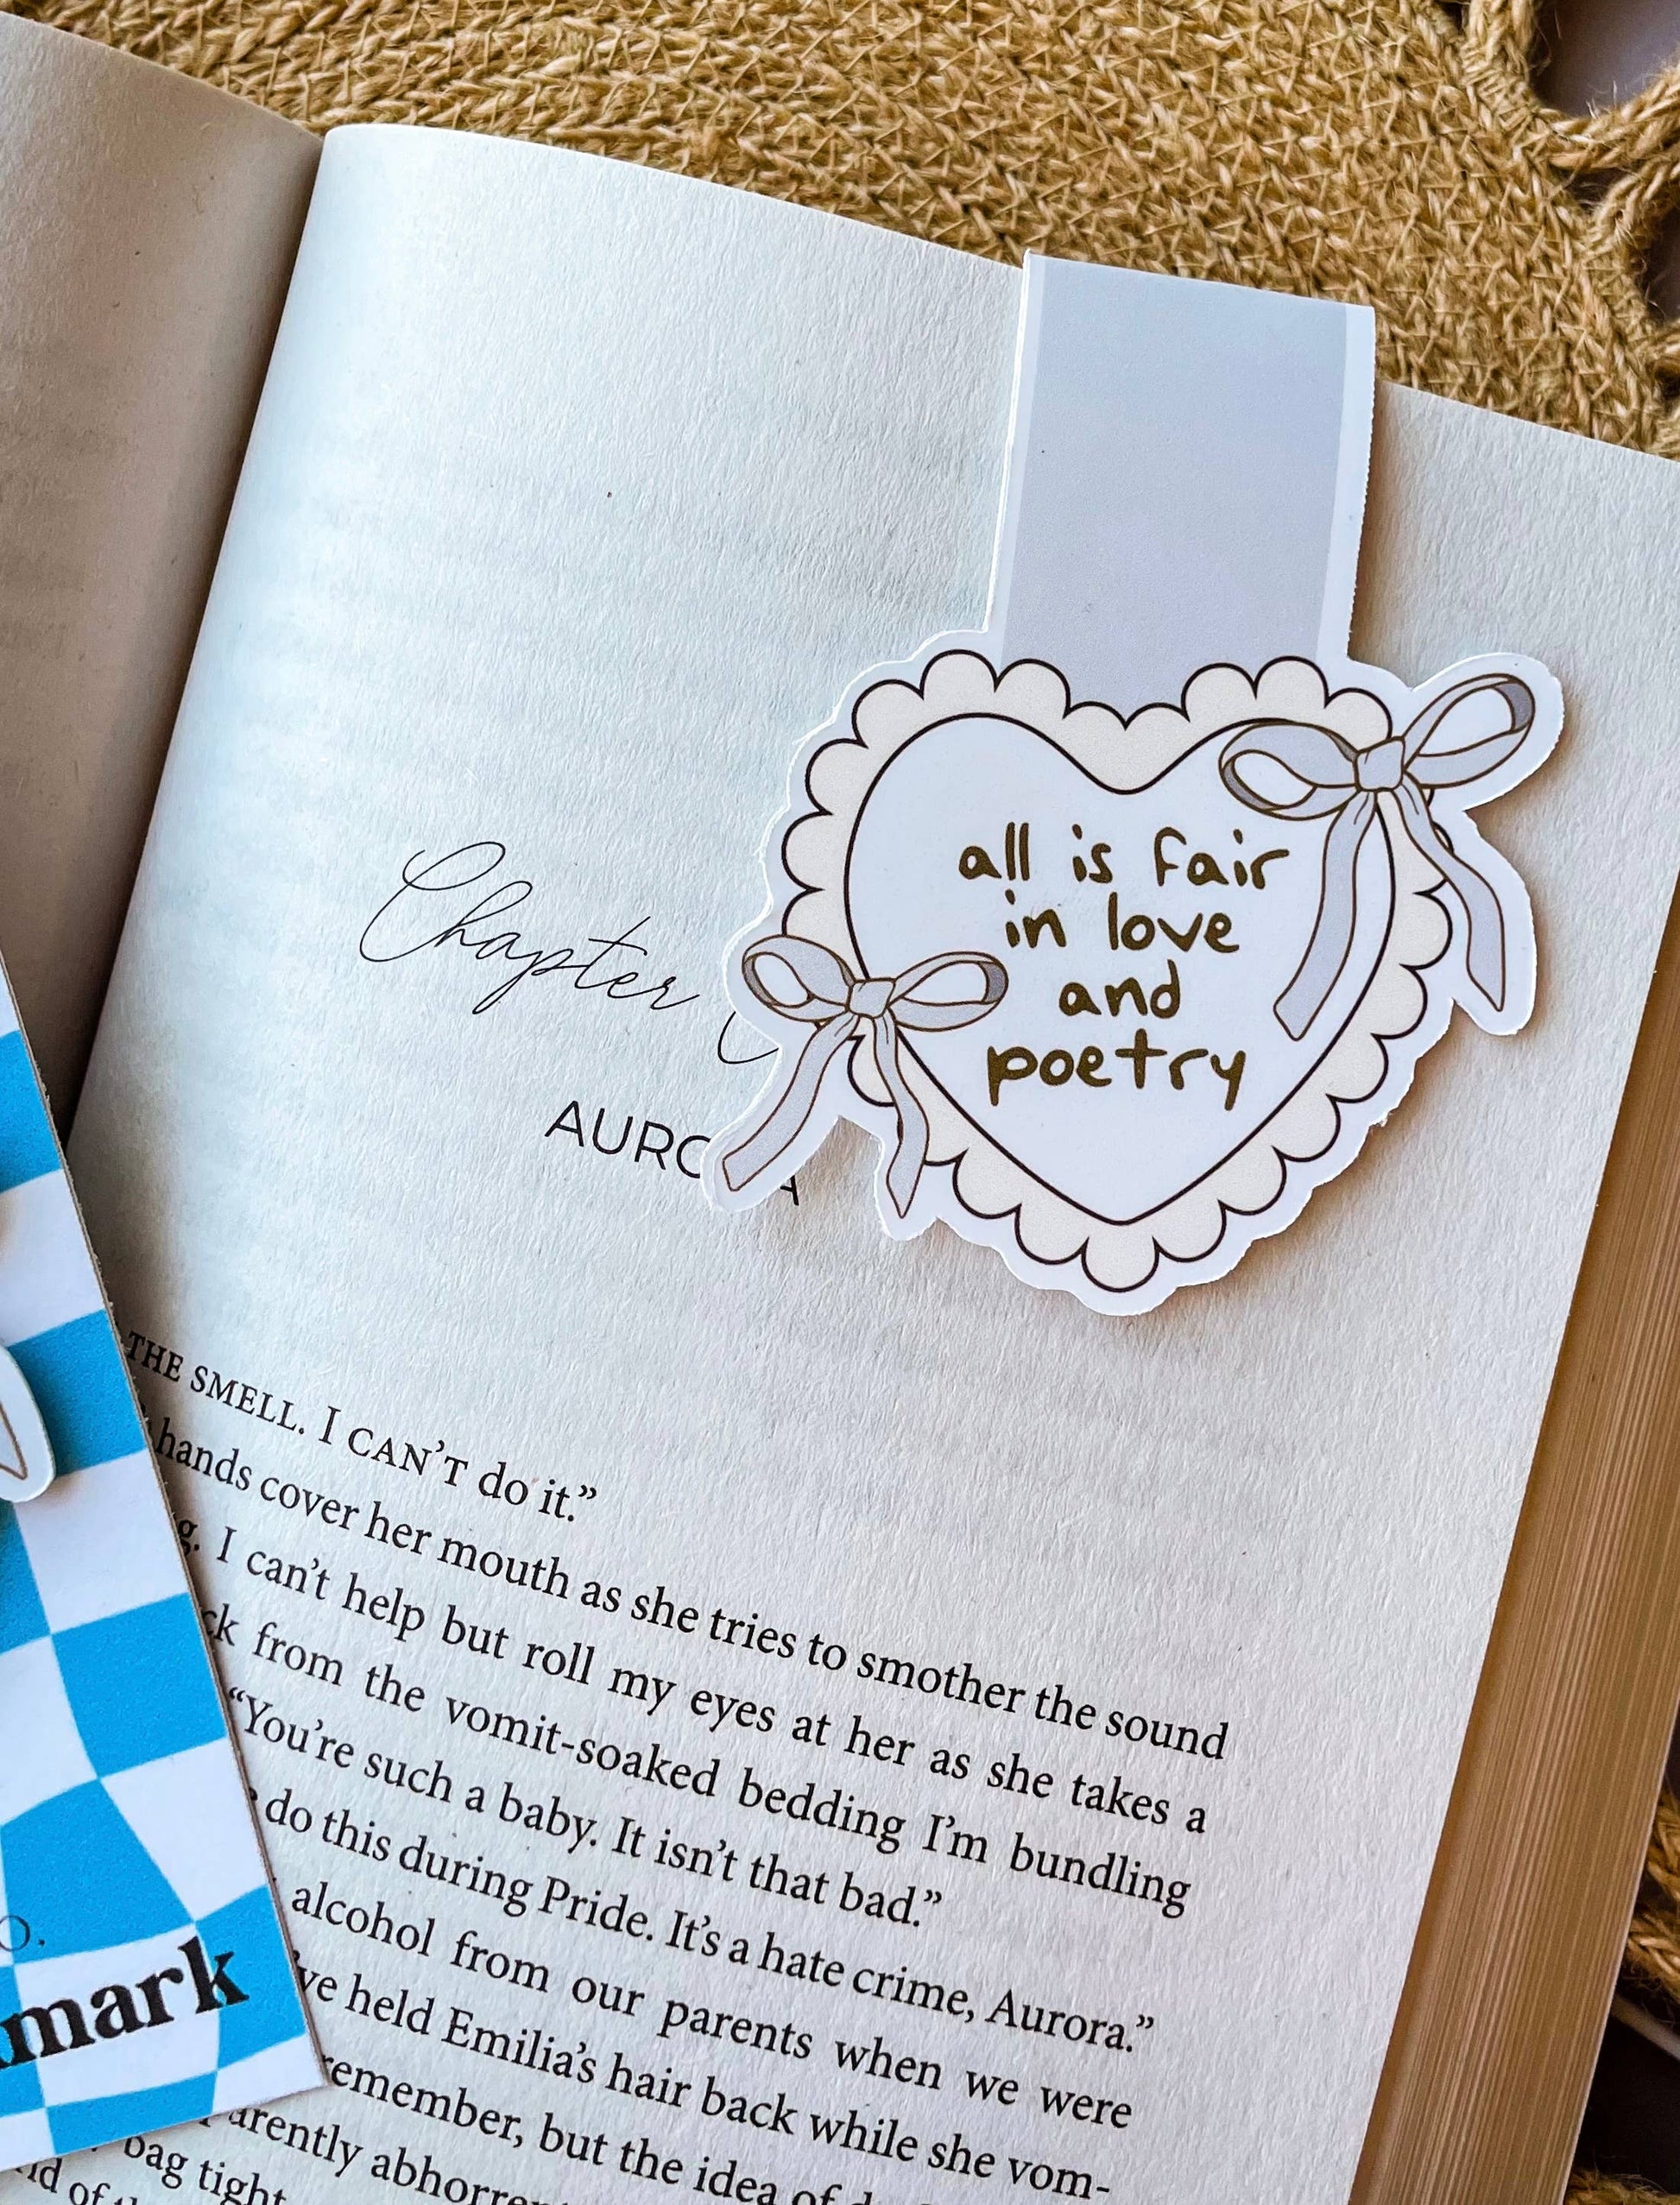 all is fair
in love
and
poetry
Chapter
THE SMELL. I CAN'T do it.”
hands cover her mouth as she tries to smother the sound
I can’t help but roll my eyes at her as she takes a
from the vomit-soaked bedding I’m bundling
“You’re such a baby. It isn’t that bad.”
do this during Pride. It’s a hate crime, Aurora.”
alcohol from our parents when we were
held Emilia’s hair back while she vom-
remember, but the idea of
bag tight
of
mark